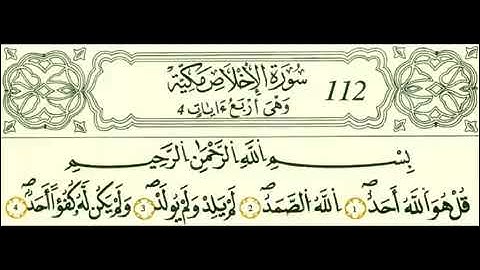 سُورَةُ الْإِخْلَاصِ مَكِّيَّة 112
وَهِيَ أَرْبَعُ ءَايَاتٍ 4
بِسْمِ اللَّهِ الرَّحْمَٰنِ الرَّحِيمِ
قُلْ هُوَ اللَّهُ أَحَدٌ ۖ 1 اللَّهُ الصَّمَدُ ۖ 2 لَمْ يَلِدْ وَلَمْ يُولَدْ ۖ 3 وَلَمْ يَكُن لَّهُ كُفُؤًا أَحَدٌ ۖ 4